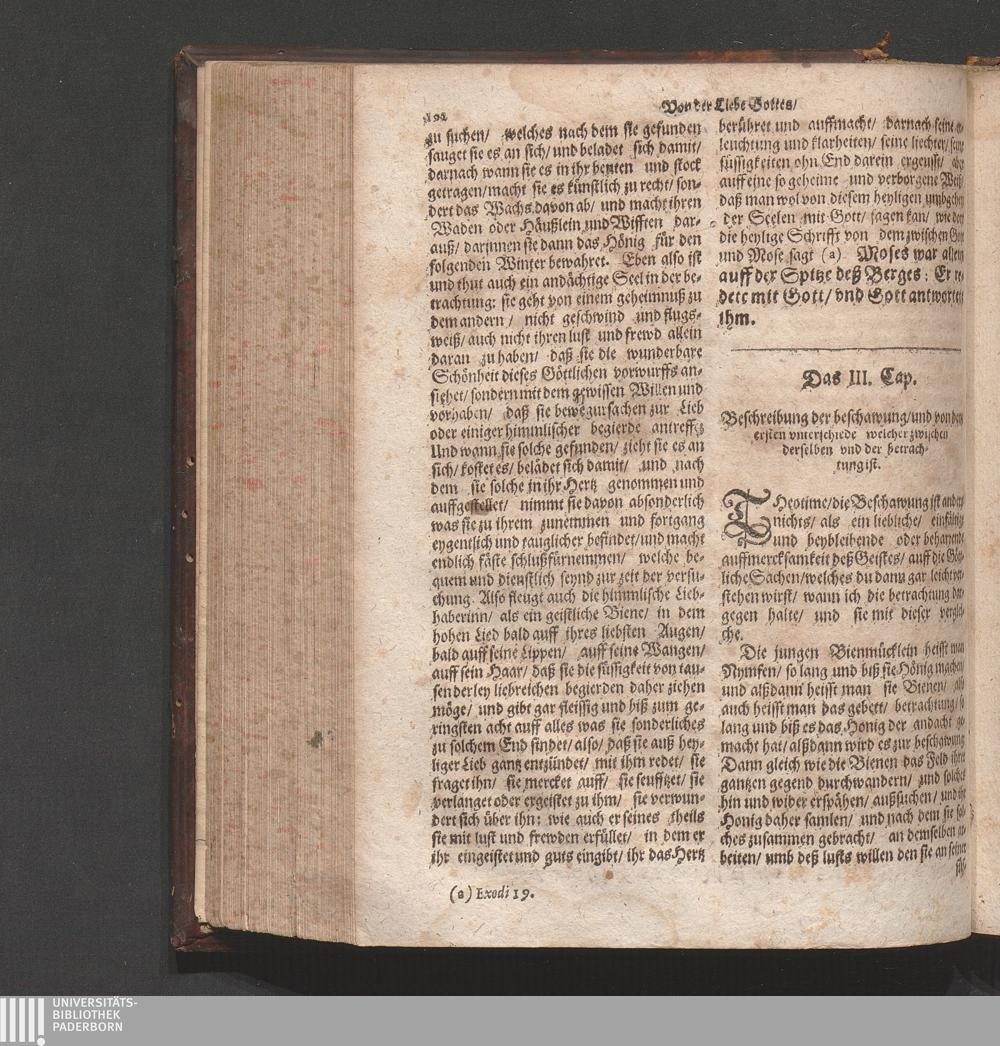 Von der Liebe Gottes/
192
zu suchen/ welches nach dem sie gefunden
sauget sie es an sich/ und beladet sich damit/
darnach wann sie es in ihr beuten und stock
getragen/ macht sie es künstlich zu recht/ son-
dert das Wachs davon ab/ und macht ihren
Waden oder Häußlein und Wifften dar-
auß/ darinnen sie dann das Hönig für den
folgenden Winter bewahret. Eben also ist
und thut auch ein andächtige Seel in der be-
trachtung: sie geht von einem geheimnuß zu
dem andern/ nicht geschwind und flugs-
weiß/ auch nicht ihren lust und frewd allein
daran zu haben/ daß sie die wunderbare
Schönheit dieses Göttlichen vorwurffs an-
sihet/ sondern mit dem gewissen Willen und
vorhaben/ daß sie bewegursachen zur Lieb
oder einiger himmlischer begierde antreffe;
Und wann sie solche gefunden/ zieht sie es an
sich/ kostet es/ belädet sich damit/ und nach
dem sie solche in ihr Hertz genommen und
auffgestellet/ nimmt sie davon absonderlich
was sie zu ihrem zunemmen und fortgang
eygentlich und tauglicher befindet/ und macht
endlich fäste schluß fürnemmen/ welche be-
quem und dienstlich seynd zur zeit der versu-
chung. Also fleugt auch die himmlische Lieb-
haberinn/ als ein geistliche Biene/ in dem
hohen Lied bald auff ihres liebsten Augen/
bald auff seine Lippen/ auff seine Wangen/
auff sein Haar/ daß sie die süssigkeit von tau-
senderley liebreichen begierden daher ziehen
möge/ und gibt gar fleissig und biß zum ge-
ringsten acht auff alles was sie sonderliches
zu solchem End findet/ also/ daß sie auß hey-
liger Lieb gantz entzündet/ mit ihm redet/ sie
fraget ihn/ sie mercket auff/ sie seufftzet/ sie
verlanget oder ergeistet zu ihm/ sie verwun-
dert sich über ihn: wie auch er seines theils
sie mit lust und frewden erfüllet/ in dem er
ihr eingeistet und guts eingibt/ ihr das Hertz
(a) Exodi 19.
berühret und auffmacht/ darnach seine
leuchtung und klarheiten/ seine liechter/ seine
süssigkeiten ohn End darein ergeusst/ aber
auff eine so geheime und verborgene Weiß/
daß man wol von diesem heyligen umbgehen
der Seelen mit Gott/ sagen kan/ wie von
die heylige Schrifft von dem zwischen Gott
und Mose sagt (a) Moses war allein
auff der Spitze deß Berges: Er re-
dete mit Gott/ vnd Gott antwortet
ihm.
Das III. Cap.
Beschreibung der beschawung/ und von dem
ersten vnterschiede welcher zwischen
derselben vnd der betrach-
tung ist.
THeotime/ die Beschawung ist anders
nichts/ als ein liebliche/ einfältige
und beybleibende oder beharrende
auffmercksamkeit deß Geistes/ auff die Gött-
liche Sachen/ welches du dann gar leicht ver-
stehen wirst/ wann ich die betrachtung dar-
gegen halte/ und sie mit dieser verglei-
che.
Die jungen Bienmücklein heisst man
Nymfen/ so lang und biß sie Hönig machen
und alßdann heisst man sie Bienen/ also
auch heisst man das gebett/ betrachtung/ so
lang und biß es das Honig der andacht ge-
macht hat/ alßdann wird es zur beschawung
Dann gleich wie die Bienen das Feld ihrer
gantzen gegend durchwandern/ und solches
hin und wider erspähen/ außsuchen/ und ihr
Honig daher samlen/ und nach dem sie sol-
ches zusammen gebracht/ an demselben ar-
beiten/ umb deß lusts willen den sie an seiner
UNIVERSITÄTS-
BIBLIOTHEK
PADERBORN